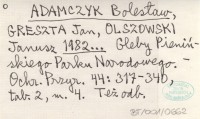 ADAMCZYK Bolesław,
GRESZTA Jan, OLSZOWSKI
Janusz 1982... Gleby Pieniń-
skiego Parku Narodowego. –
Ochr. Przyr. 44: 317-340,
tab. 2, m. 4. Też odb.
85/001/0662